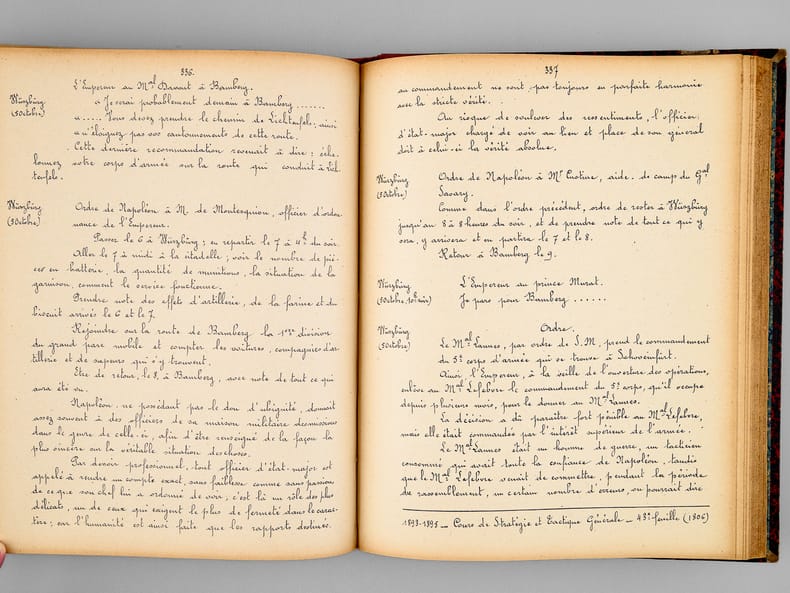 336.
L'Empereur au Mal Davout à Bamberg.
Würzbürg
(5 Octobre)
« Je serai probablement demain à Bamberg .......
« ..... Vous devez prendre le chemin de Lichtenfels; ainsi
« n'éloignez pas vos cantonements de cette route.
Cette dernière recommandation revenait à dire : éche-
lonnez votre corps d'armée sur la route qui conduit à Lich-
tenfels.
Würzbürg
(5 Octobre)
Ordre de Napoléon à M. de Montesquiou, officier d'ordon-
nance de l'Empereur.
Passez le 6 à Würzbürg ; en repartir le 7 à 4h du soir.
Aller le 7 à midi à la citadelle ; voir le nombre de piè-
ces en batterie, la quantité de munitions, la situation de la
garnison, comment le service fonctionne.
Prendre note des effets d'artillerie, de la farine et du
biscuit arrivés le 6 et le 7.
Rejoindre sur la route de Bamberg la 1ère division
du grand parc mobile et compter les voitures, compagnies d'ar-
tillerie et de sapeurs qui s'y trouvent.
Etre de retour, le 8, à Bamberg, avec note de tout ce qui
aura été vu.
Napoléon, ne possédant pas le don d'ubiquité, donnait
assez souvent à des officiers de sa maison militaire des missions
dans le genre de celle-ci, afin d'être renseigné de la façon la
plus sincère sur la véritable situation des choses.
Par devoir professionnel, tout officier d'état-major est
appelé à rendre un compte exact, sans faiblesse comme sans passion,
de ce que son chef lui a ordonné de voir ; c'est là un rôle des plus
délicats, un de ceux qui exigent le plus de fermeté dans le carac-
tère ; car l'humanité est ainsi faite que les rapports destinés
337
au commandement ne sont pas toujours en parfaite harmonie
avec la stricte vérité.
Au risque de soulever des ressentiments, l'officier
d'état-major chargé de voir au lieu et place de son général
doit à celui-ci la vérité absolue.
Würzbürg
(5 Octobre)
Ordre de Napoléon à Mr Custine, aide-de camp du Gal
Savary.
Comme dans l'ordre précédent, ordre de rester à Würzbürg
jusqu'au 8 à 8 heures du soir, et de prendre note de tout ce qui y
sera, y arrivera et en partira le 7 et le 8.
Retour à Bamberg le 9.
Würzbürg
(5 Octobre, 10h soir)
L'Empereur au prince Murat.
Je pars pour Bamberg ......
Würzbürg
(5 Octobre)
Ordre.
Le Mal Lannes, par ordre de S.M., prend le commandement
du 5e corps d'armée qui se trouve à Schweinfürt.
Ainsi l'Empereur, à la veille de l'ouverture des opérations,
enlève au Mal Lefebvre le commandement du 5e corps, qu'il occupe
depuis plusieurs mois, pour le donner au Mal Lannes.
La décision a dû paraître fort pénible au Mal Lefebvre,
mais elle était commandée par l'intérêt supérieur de l'armée.
Le Mal Lannes était un homme de guerre, un tacticien
consommé qui avait toute la confiance de Napoléon, tandis
que le Mal Lefebvre venait de commettre, pendant la période
de rassemblement, un certain nombre d'erreurs, on pourrait dire
1893-1895 _ Cours de Stratégie et Tactique Générale _ 43e feuille (1806)